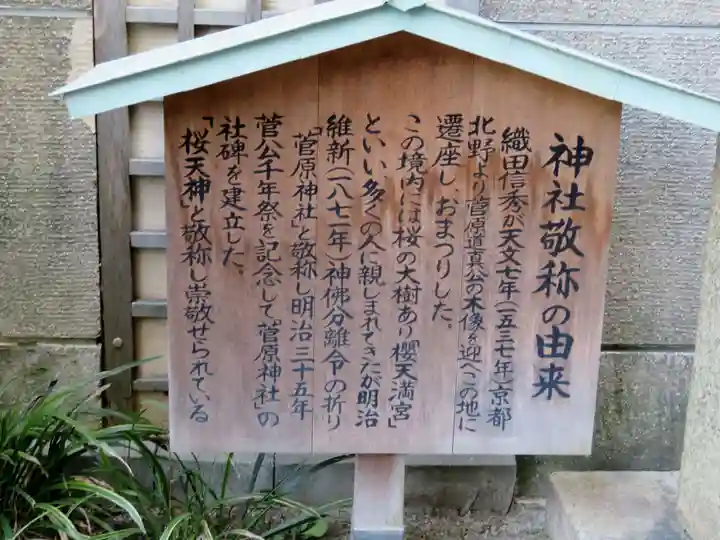 神社敬称の由来
織田信秀が天文七年(一五三七年)京都
北野より菅原道真公の木像を迎へこの地に
遷座し、おまつりした。
この境内には桜の大樹あり「櫻天満宮」
といい多くの人に親しまれてきたが明治
維新(一八七一年)神佛分離令の折り
「菅原神社」と敬称し明治三十五年
菅公千年祭を記念して「菅原神社」の
社碑を建立した。
「桜天神」と敬称し崇敬せられている